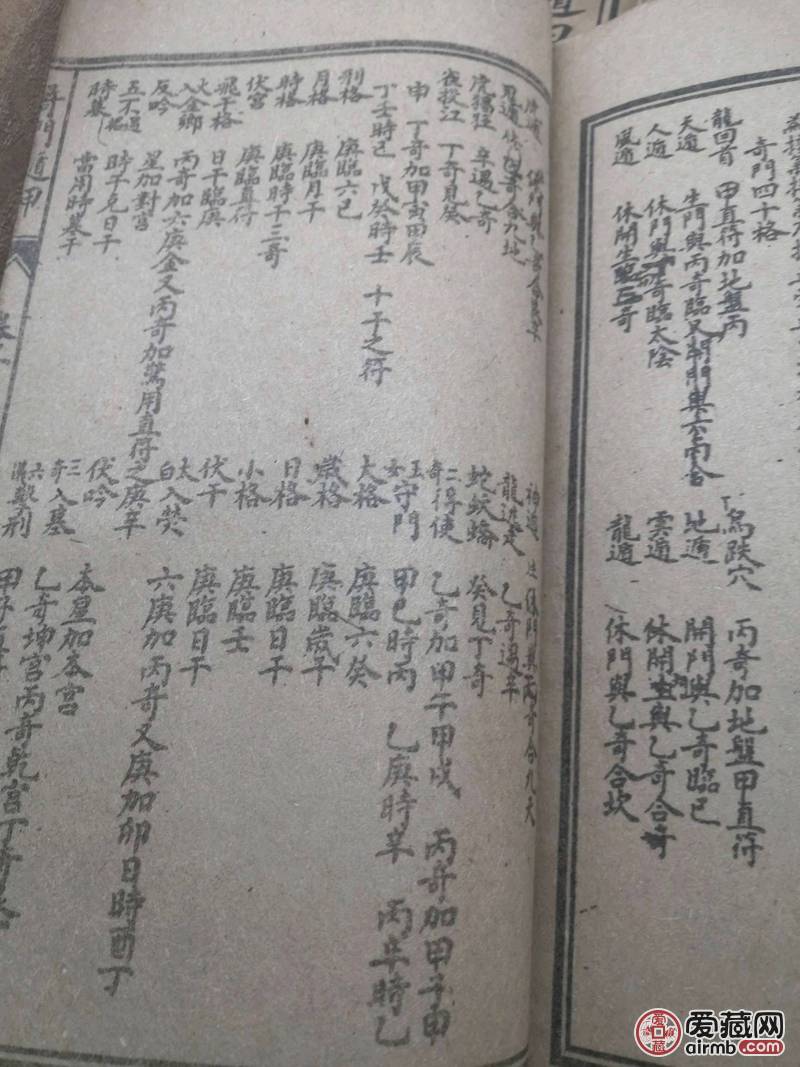 奇門四十格
龍回首 甲直符加地盤丙 鳥跌穴 丙奇加地盤甲直符
天遁 生門與丙奇臨 又開門與六丙合 地遁 開門與乙奇臨己
人遁 休門與丁奇臨太陰 雲遁 休開生與乙奇合
風遁 休開生三奇 龍遁 休門與乙奇合坎
神遁
虎猖狂 辛遇乙奇 龍逃走 乙奇遇辛
夜投江 丁奇見癸 蛇妖蟜 癸見丁奇
申 丁奇加甲寅甲辰 二奇得使 乙奇加甲午甲戌 丙奇加甲子甲
丁壬時己 戊癸時壬 十干之符 玉女守門 甲己時丙 乙庚時辛 丙辛時乙
刑格 庚臨六己 大格 庚臨六癸
月格 庚臨月干 歲格 庚臨歲干
時格 庚臨時干三奇 日格 庚臨日干
伏宮 庚臨直符 小格 庚臨壬
飛干格 日干臨庚 伏干 庚臨日干
火入金鄉 丙奇加六庚金又丙奇加驚用直符之庚辛 太白入熒 六庚加丙奇又庚加卯日時酉丁
反吟 星加對宮 伏吟 本星加本宮
五不遇 時干克日干 三奇入墓 乙奇坤宮丙奇乾宮丁奇
時墓 當用時墓干 六
奇門遁甲
爱藏网
airmb.com